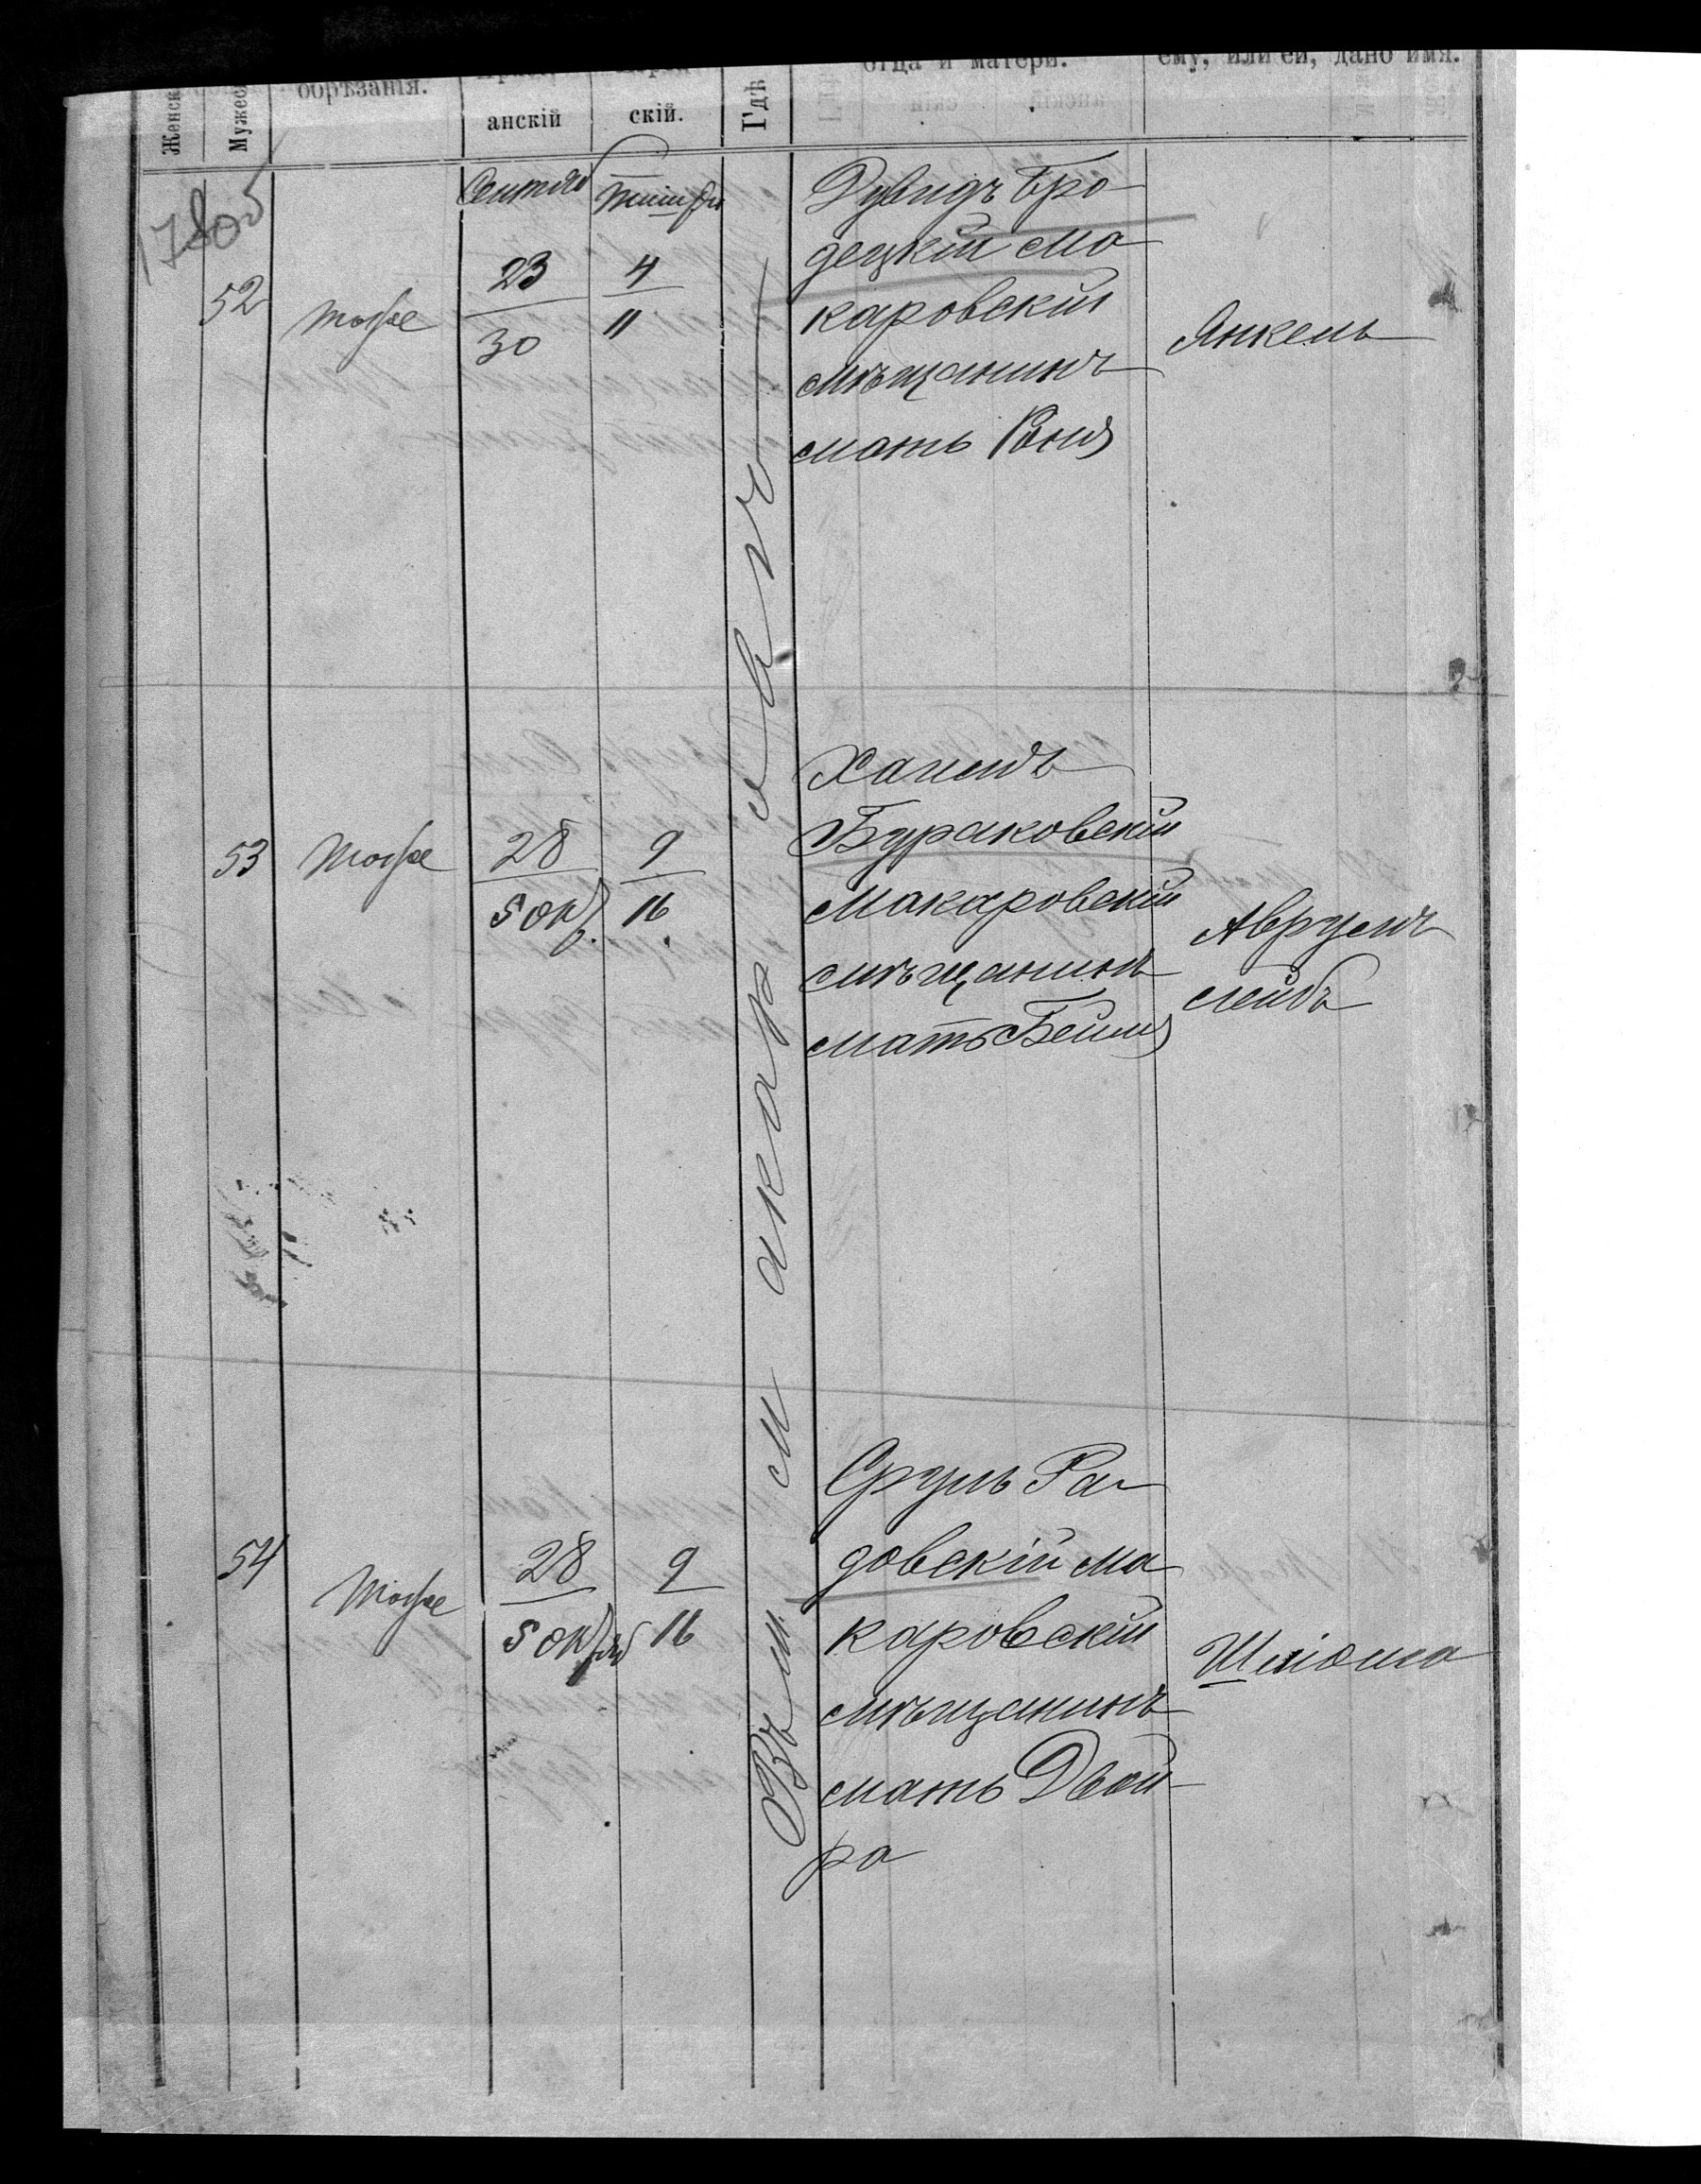 Женск
Мужес
обрѣзанія.
анскій
скій.
Гдѣ
отца и матери.
ему, или ей, дано имя.
178об
Сентяб
Тишри
52
тоже
23
30
4
11
Дувидъ Бро
децкій Ма
каровскій
мѣщанинъ
мать
Янкель
Въ м Макаровѣ
53
тоже
28
5 окт.
9
16
Хаимъ
Бураковскій
Макаровскій
мѣщанинъ
мать Бейля
Аврумъ
Лейбъ
54
тоже
28
5 октяб
9
16
Сруль Ра
довскій Ма
каровскій
мѣщанинъ
мать Двой
ра
Шлiома